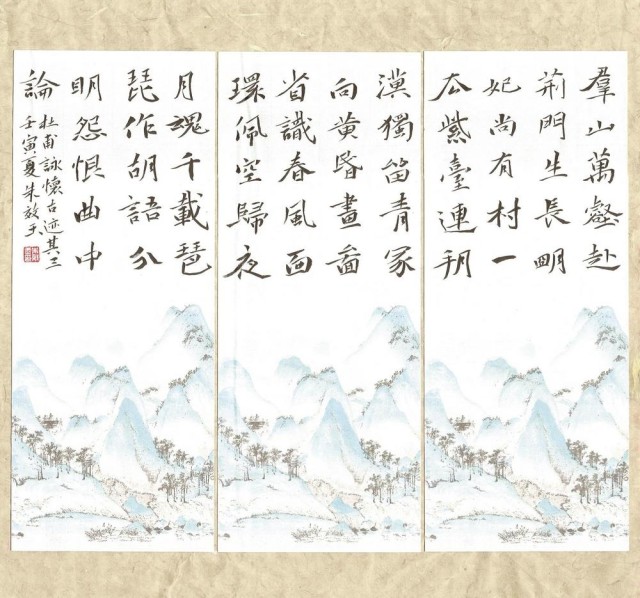 羣山萬壑赴
荆門生長明
妃尚有村一
去紫臺連朔
漠獨留青冢
向黄昏畫圖
省識春風面
環佩空歸夜
月魂千載琶
琵作胡語分
明怨恨曲中
論
杜甫詠懷古迹其三
壬寅夏朱